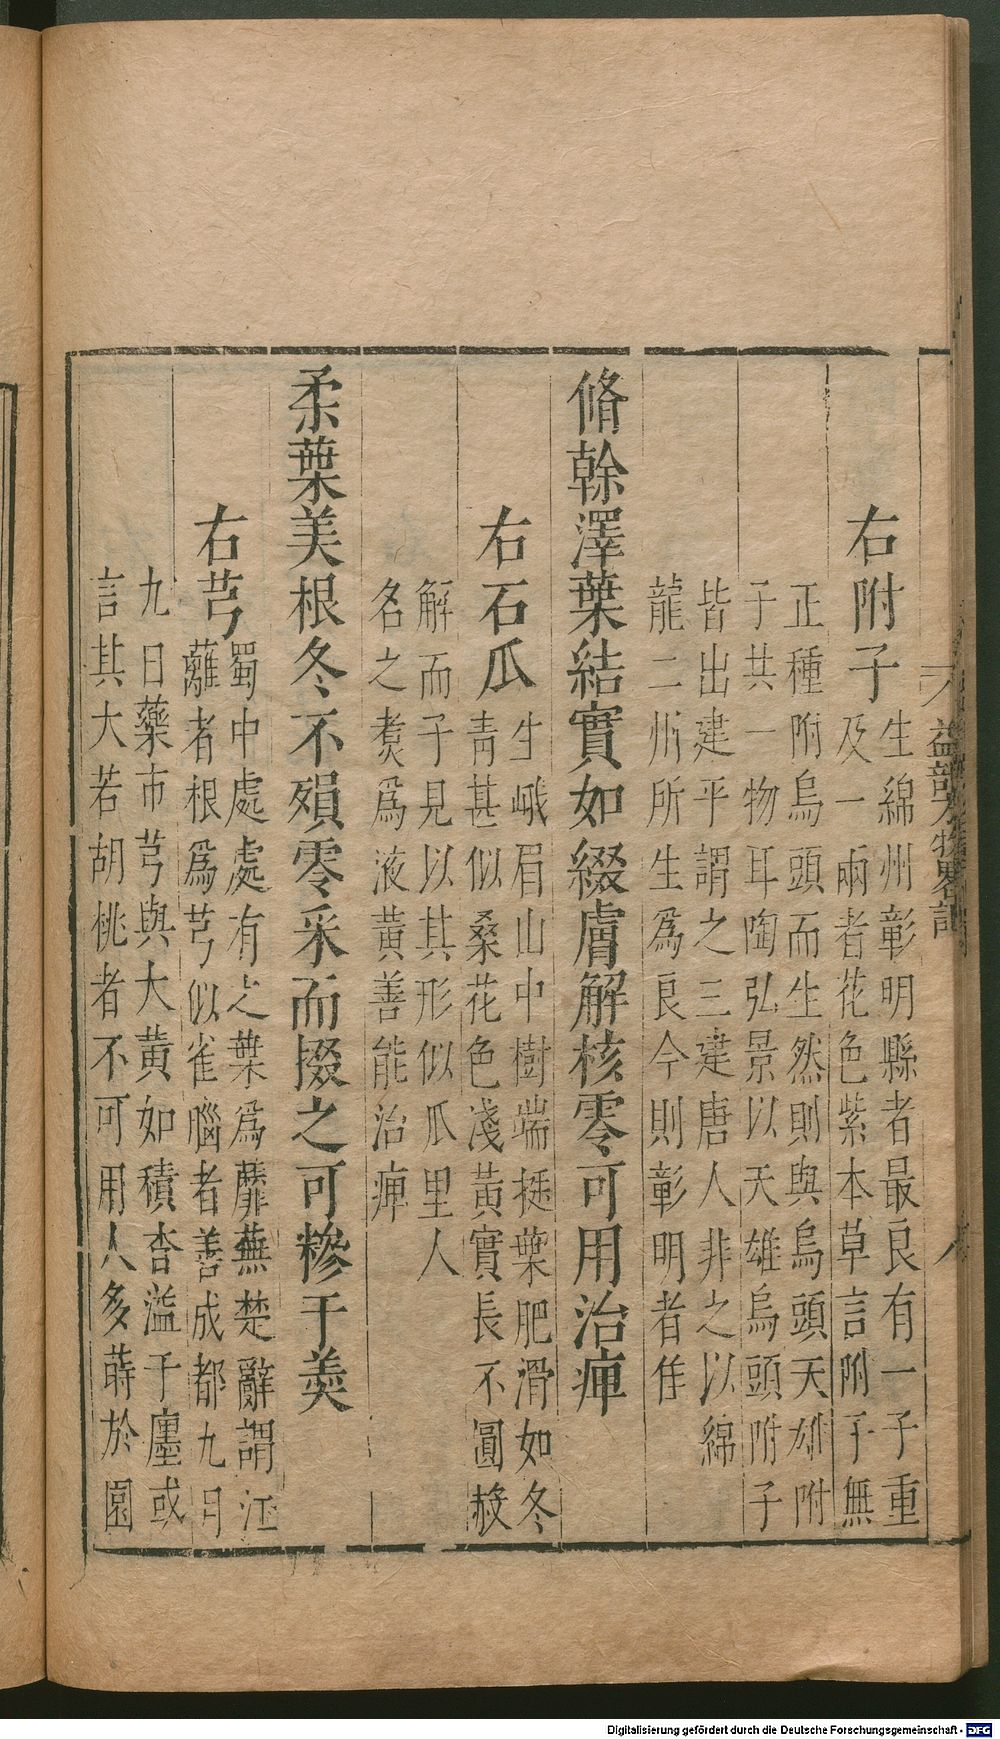 右附子
生綿州彰明縣者最良有一子重
及一兩者花色紫本草言附子無
正種附烏頭而生然則與烏頭天雄附
子共一物耳陶弘景以天雄烏頭附子
皆出建平謂之三建唐人非之以綿
龍二州所生爲良今則彰明者佳
脩幹澤葉結實如綴膚解核零可用治痺
右石瓜
生峨眉山中樹端挺葉肥滑如冬
青甚似桑花色淺黃實長不圓殼
解而子見以其形似瓜里人
名之煮爲液黃善能治痺
柔葉美根冬不殞零采而掇之可糝于羮
右芎
蜀中處處有之葉爲蘼蕪楚辭謂江
蘺者根爲芎似雀腦者善成都九日
九日藥市芎與大黃如積杳溢于廛或
言其大若胡桃者不可用人多蒔於園
益部方物畧記
八
Digitalisierung gefördert durch die Deutsche Forschungsgemeinschaft - DFG